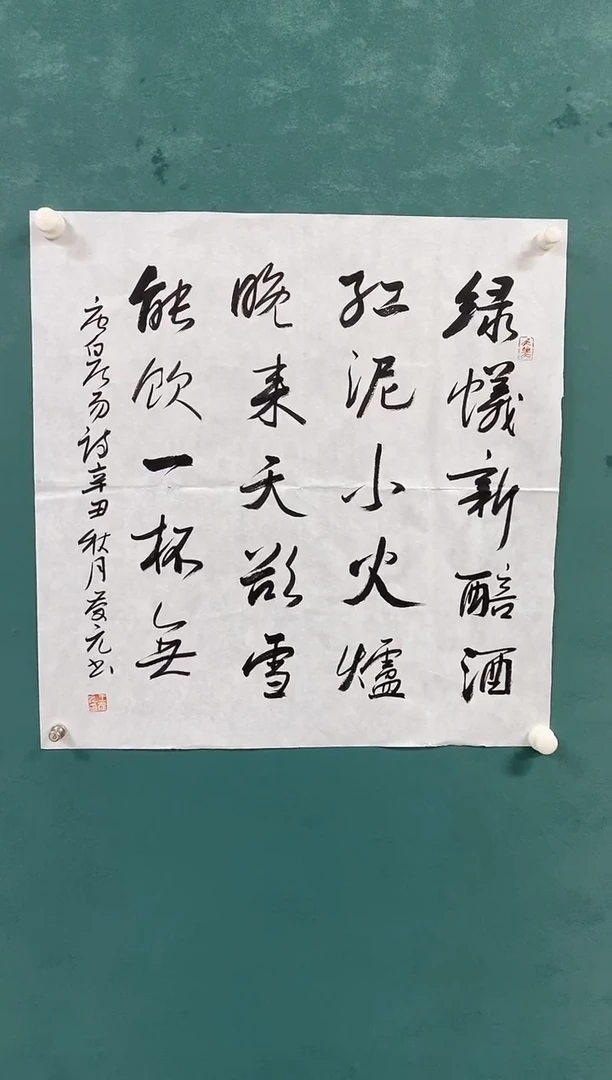 绿蟻新醅酒
红泥小火爐
晚来天欲雪
能饮一杯無
唐白居易诗辛丑秋月元书